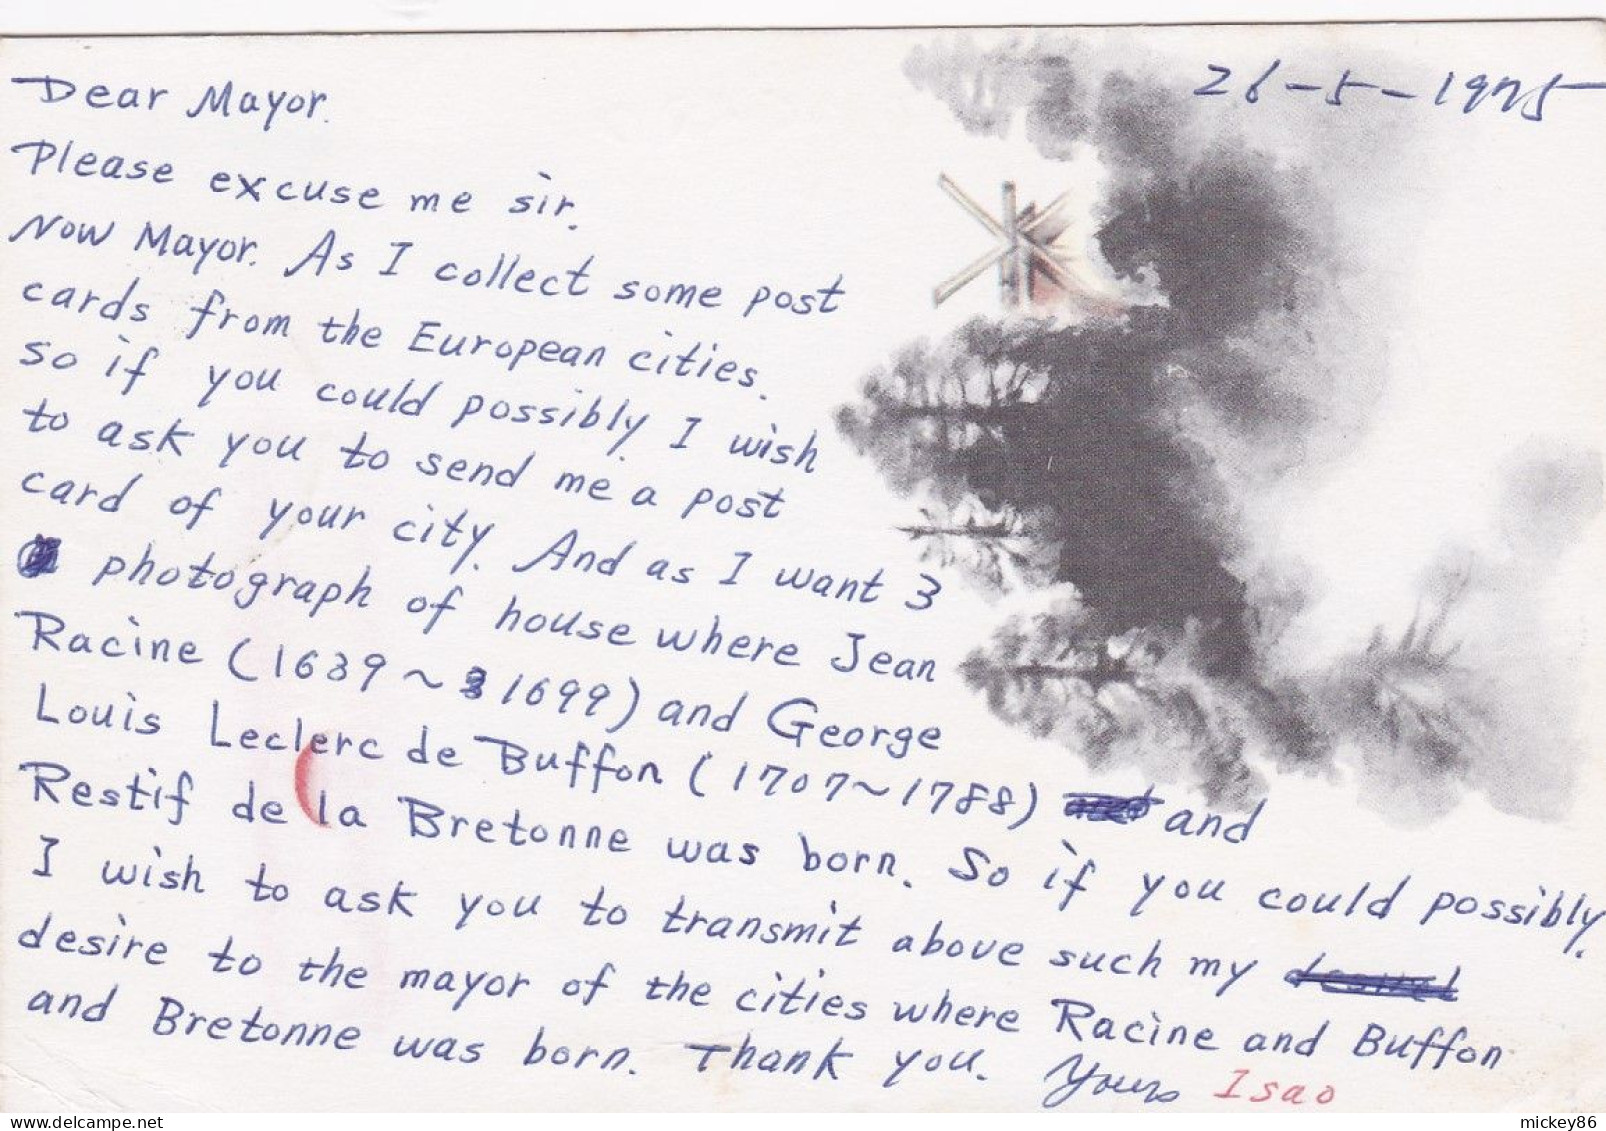 26-5-1975
Dear Mayor.
Please excuse me sir.
Now Mayor. As I collect some post
cards from the European cities.
so if you could possibly. I wish
to ask you to send me a post
card of your city. And as I want 3
photograph of house where Jean
Racine (1639~1699) and George
Louis Leclerc de Buffon (1707~1788) and
Restif de la Bretonne was born. So if you could possibly.
I wish to ask you to transmit above such my
desire to the mayor of the cities where Racine and Buffon
and Bretonne was born. Thank you. Yours Isao
mickey86